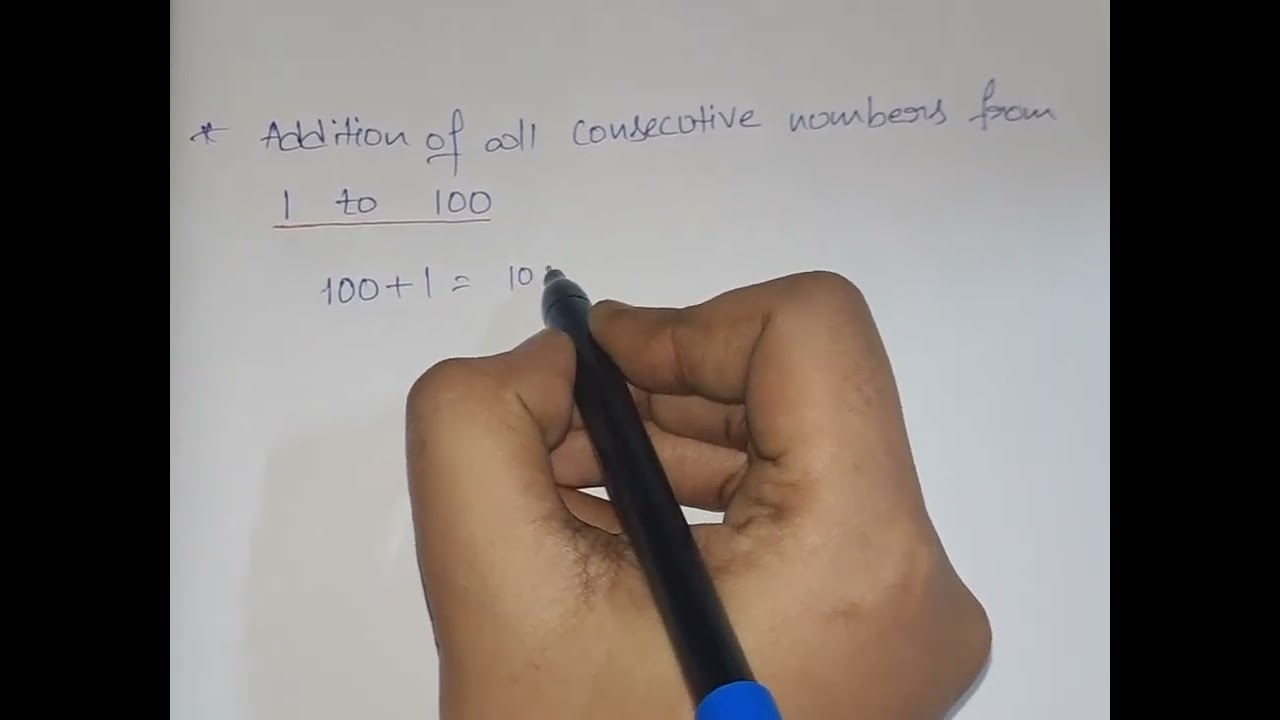 * Addition of all consecutive numbers from
1 to 100
100+1 = 10